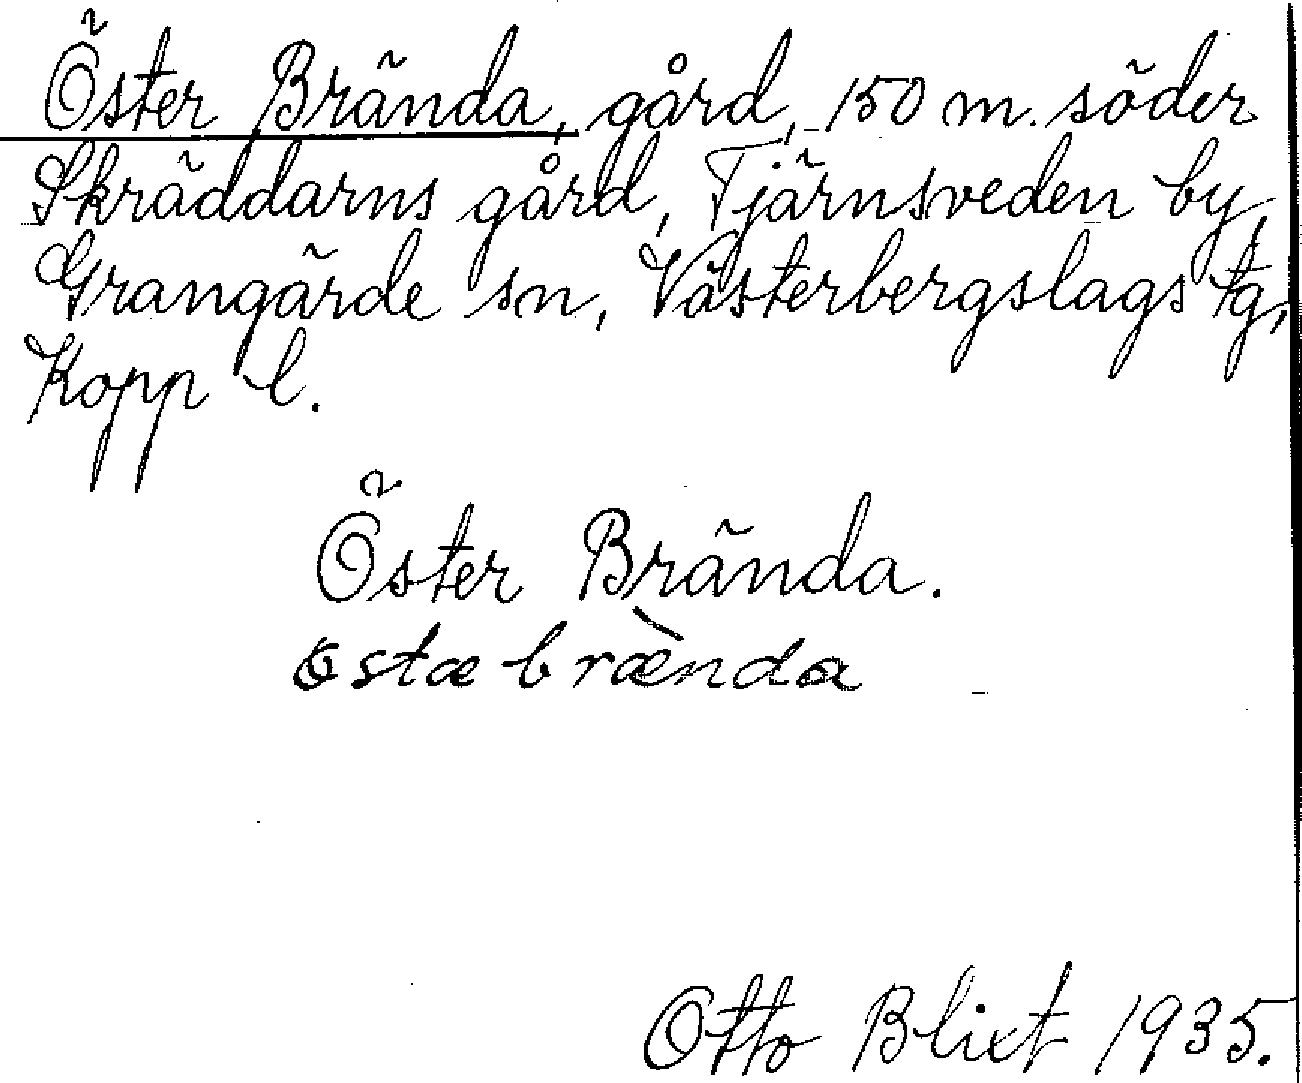 Öster Brända, gård, 150 m. söder
Skräddarns gård, Tjärnsveden by,
Grangärde sn, Västerbergslags tg,
Kopp l.
Öster Brända.
östæ bræ̀nda
Otto Blixt 1935.